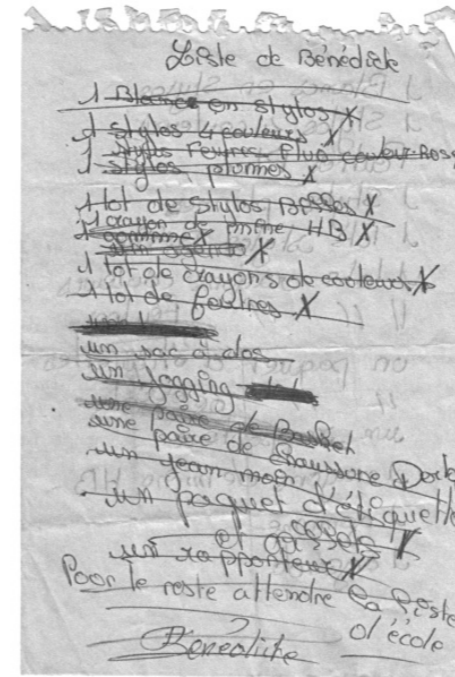 Liste de Bénédicte
1 Blanco en stylos X
1 stylos 4 couleurs X
1 stylos Feutres Fluo couleur Rose
1 stylos plumes X
1 lot de stylos Billes X
1 crayon de mine HB X
1 gomme X
un agenda X
1 lot de crayons de couleurs X
1 lot de feutres X
un sac à dos
un jogging
une paire de Basket
une paire de chaussure Dock
un jean moin
un paquet d'étiquette
et gaffete X
un rapporteur X
Pour le reste attendre la liste
d'école
Bénédicte